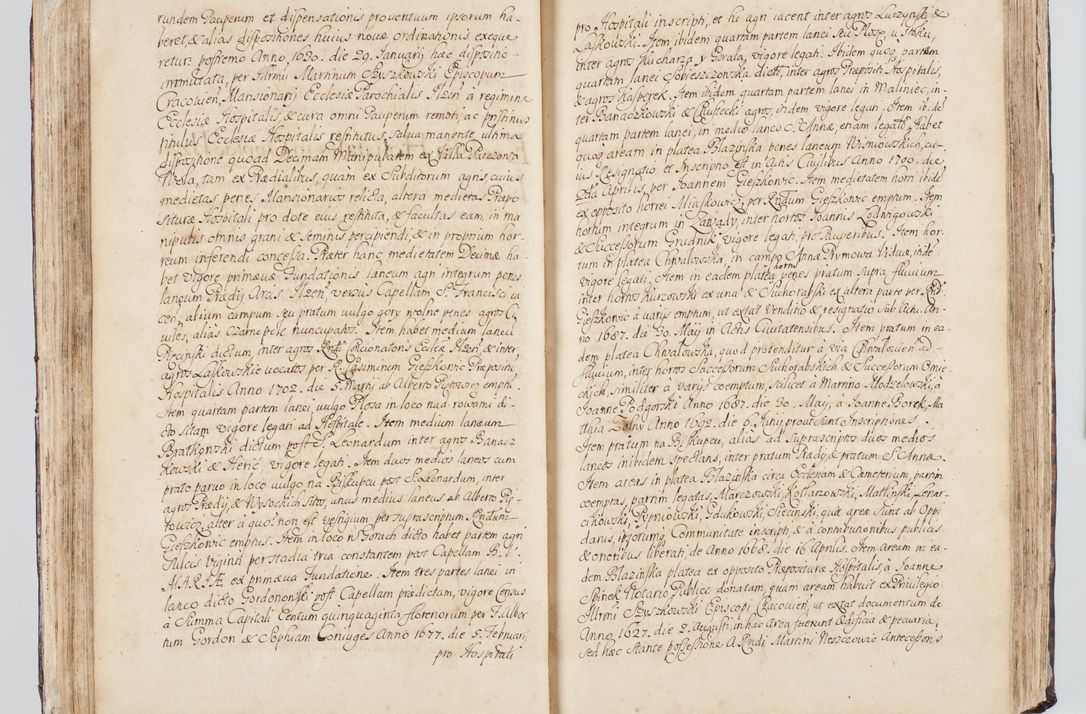 rundem Pauperum et dispensationis proventuum ipsorum ha-
beret, & alias dispositiones huius novæ ordinationis exeque
retur: postremo Anno, 1630. die 29. Januarij hac dispositio-
immutata, per Illrmũ Martinum Szyszkowski Episcopum
Cracovien, Mansionarij Ecclesiæ Parochialis Ilzen à regimine
Ecclesiæ Hospitalis, & cura omni Pauperum remoti, ac pristinus
Ecclesiæ Hospitalis restitutus, salva manente ultima
dispositione quoad Decimam Manipularem ex Villa
Wola, tam ex Prædialibus, quam ex Subditorum agris, cuius
medietas penes Mansionarios relicta, altera medietas Præpo
situræ Hospitali pro dote eius restituta, & facultas eam, in ma
nipulis omnis grani & seminis percipiendi, & in proprium hor-
reum inferendi concessa. Præter hanc medietatem Decimæ ha-
bet vigore primævæ Fundationis laneum agri integrum penes
laneum Prædij Arcis Ilzen, versus Capellam S. Francisci ia
cen, alium campum seu pratum vulgo gory wolne penes agros
alias Czarne pole nuncupatos. Item habet medium laneu
dictum inter agros Rndi Concionatoris Eccliæ Ilzen, & inter
agros Laskowskie vocatos per R. Casimirum Gieszkowic Præpositũ
Hospitalis Anno 1702. die 5. Martij ab Alberto emptũ.
Item quartam partem lanei, vulgo Plosa in loco nad rowami di-
cto sitam vigore legati ad Hospitale. Item medium laneum
Bratkowski dictum post S. Leonardum inter agros Banasz
kowski & Heric, vigore legati. Item duos medios laneos cum
prato parvo in loco vulgo na Biskupcu post S. Leonardum, inter
agros Prædij, & Wysockich sitos, unus medius laneus ab Alberto
alter à quo? non est vestigium per suprascriptum Rndum
Gieszkowic emptus. Item in loco w Gorach dicto habet partem agri
sulcis viginti per stadia tria constantem post Capellam B. V.
M.A.R.I.Æ ex primæva Fundatione. Item tres partes lanei in
laneo dicto Gordonowski post Capellam prædictam, vigore Census
à Summa Capitali Centum quinquaginta florenorum per F. Alber
tum Gordon & Sophiam Coniuges Anno 1677. die 5. Februarij
pro Hospitali
pro Hospitali inscripti, et hi agri iacent inter agros Luszynski &
Laskowski. Item ibidem quartam partem lanei seu Plosę, u Stoku,
inter agros Kucharza, & Gorala, vigore legati. Ibidem quoq partem
quartam lanei Sobieszczonska dicti, inter agros Præpositi Hospitalis,
& agros Kasperek. Item ibidem quartam partem lanei in Maliniec, in-
ter Banaczkowski & Chustecki agros, itidem vigore legati. Item ibidẽ
quartam partem lanei, in medio laneo S. Annæ, etiam legatũ. Habet
quoq aream in platea Blazinska penes laneum Wisniowskich, cu-
ius Resignatio et Inscriptio est in Actis Civilibus Anno 1700. die
Aprilis, per Joannem Gieszkowic. Item medietatem horti ibidẽ
ex opposito horrei Miaskowic, per Rndum Gieszkowic emptum. Item
hortum integrum in Zawady, inter hortos Joannis Lodwigowski
& Successorum Grudnik, vigore legati, pro Pauperibus. Item hor-
tum in platea Chwalowska, in campo Annæ Rymowa Viduæ, itidẽ
vigore legati. Item in eadem platea hortus penes pratum supra fluvium
inter hortos Kurzowski ex una & Suchorabski ex altera parte per Rnd
Gieszkowic à varijs emptum, ut extat Venditio & resignatio sub Actu An-
no 1687. die 30. Maij in Actis Civitatensibus. Item pratum in ea-
dem platea Chwalowska, quod protenditur à via Chwalovien ad
fluvium, inter hortos Successorum Suchorabskich & Successorum Gmie-
similiter à varijs coemptum, scilicet à Martino Mlodzelowski, à
Joanne Podgorski Anno 1687. die 30. Maij, à Joanne Borek, Ma
thia Anno 1692. die 6. Junij prout sunt Inscriptiones.
Item pratum na Biskupcu, alias ad suprascriptos duos medios
laneos inibidem spectans, inter pratum Prædij, & pratum S. Annæ.
Item areas in platea Blazinska circa Ecclesiam & Cæmeterium, partim
coemptas, partim legatas, Marczewski, Kotlarzowski, Matlinski, Lenar-
cikowski, Pipniowski, Gdukowski, Siecinski, quæ areæ sunt ab Oppi
danis, ipsorumq Communitate inscripti, & à contributionibus publicis,
& oneribus liberati de Anno 1668. die 16 Aprilis. Item Aream in ea-
dem Blazinska platea ex opposito Præposituræ Hospitalis, à Joanne
Spinek Notario Publico donatam, quam aream habuit ex Privilegio
Illrmi Szyszkowski Episcopi Cracovien, ut extat documentum de
Anno, 1627. die 2. Augusti, in hac Area fuerunt Ædificia & pecuaria,
sed hæc stante possessione A. Rndi Martini Neszczowic Antecessoris